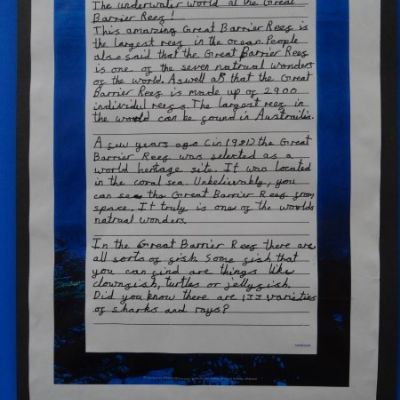 The underwater world at the Great
Barrier Reef!
This amazing Great Barrier Reef is
the largest reef in the ocean. People
also said that the Great Barrier Reef
is one of the seven natural wonders
of the world. Aswell as that the Great
Barrier Reef is made up of 2900
individul reefs. The largest reef in
the world can be found in Austrailia.
A few years ago (in 1981) the Great
Barrier Reef was selected as a
world heritage site. It was located
in the coral sea. Unbelievably, you
can see the Great Barrier Reef from
space. It truly is one of the worlds
natrual wonders.
In the Great Barrier Reef there are
all sorts of fish. Some fish that
you can find are things like
clownfish, turtles or jellyfish.
Did you know there are 133 varieties
of sharks and rays?